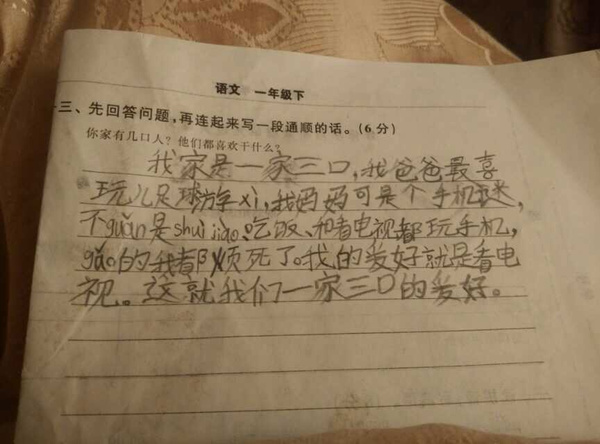 语文 一年级下
三、先回答问题,再连起来写一段通顺的话。(6分)
你家有几口人?他们都喜欢干什么?
我家是一家三口,我爸爸最喜
玩儿足球游字xì,我妈妈可是个手机谜,
不guǎn是shuì jiào、吃饭、和看电视都玩手机,
gǎo的我都烦死了。我的爱好就是看电
视。这就我们一家三口的爱好。